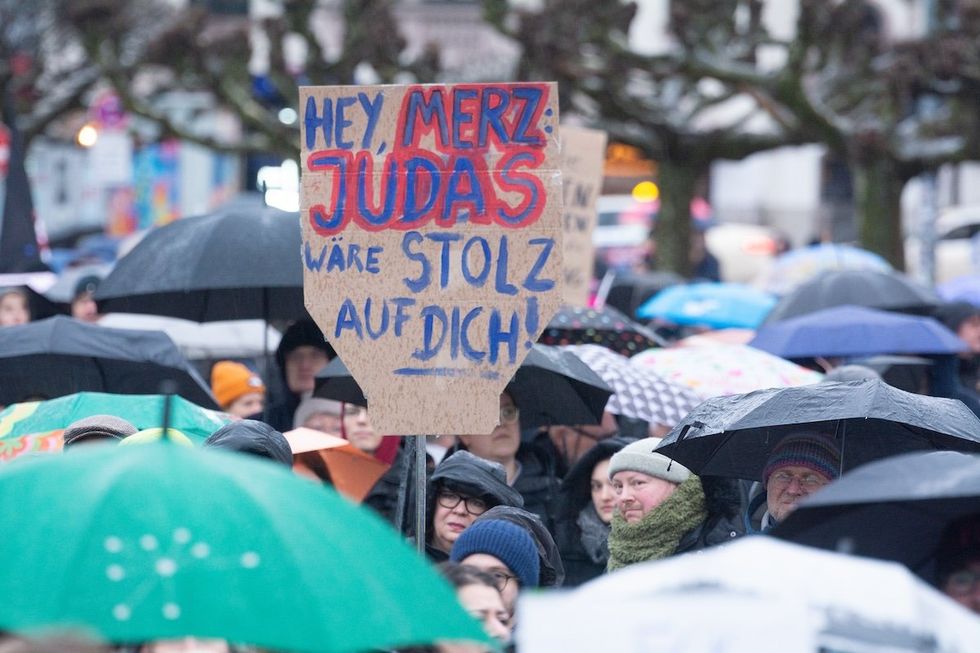 HEY, MERZ:
JUDAS
WÄRE STOLZ
AUF DICH!